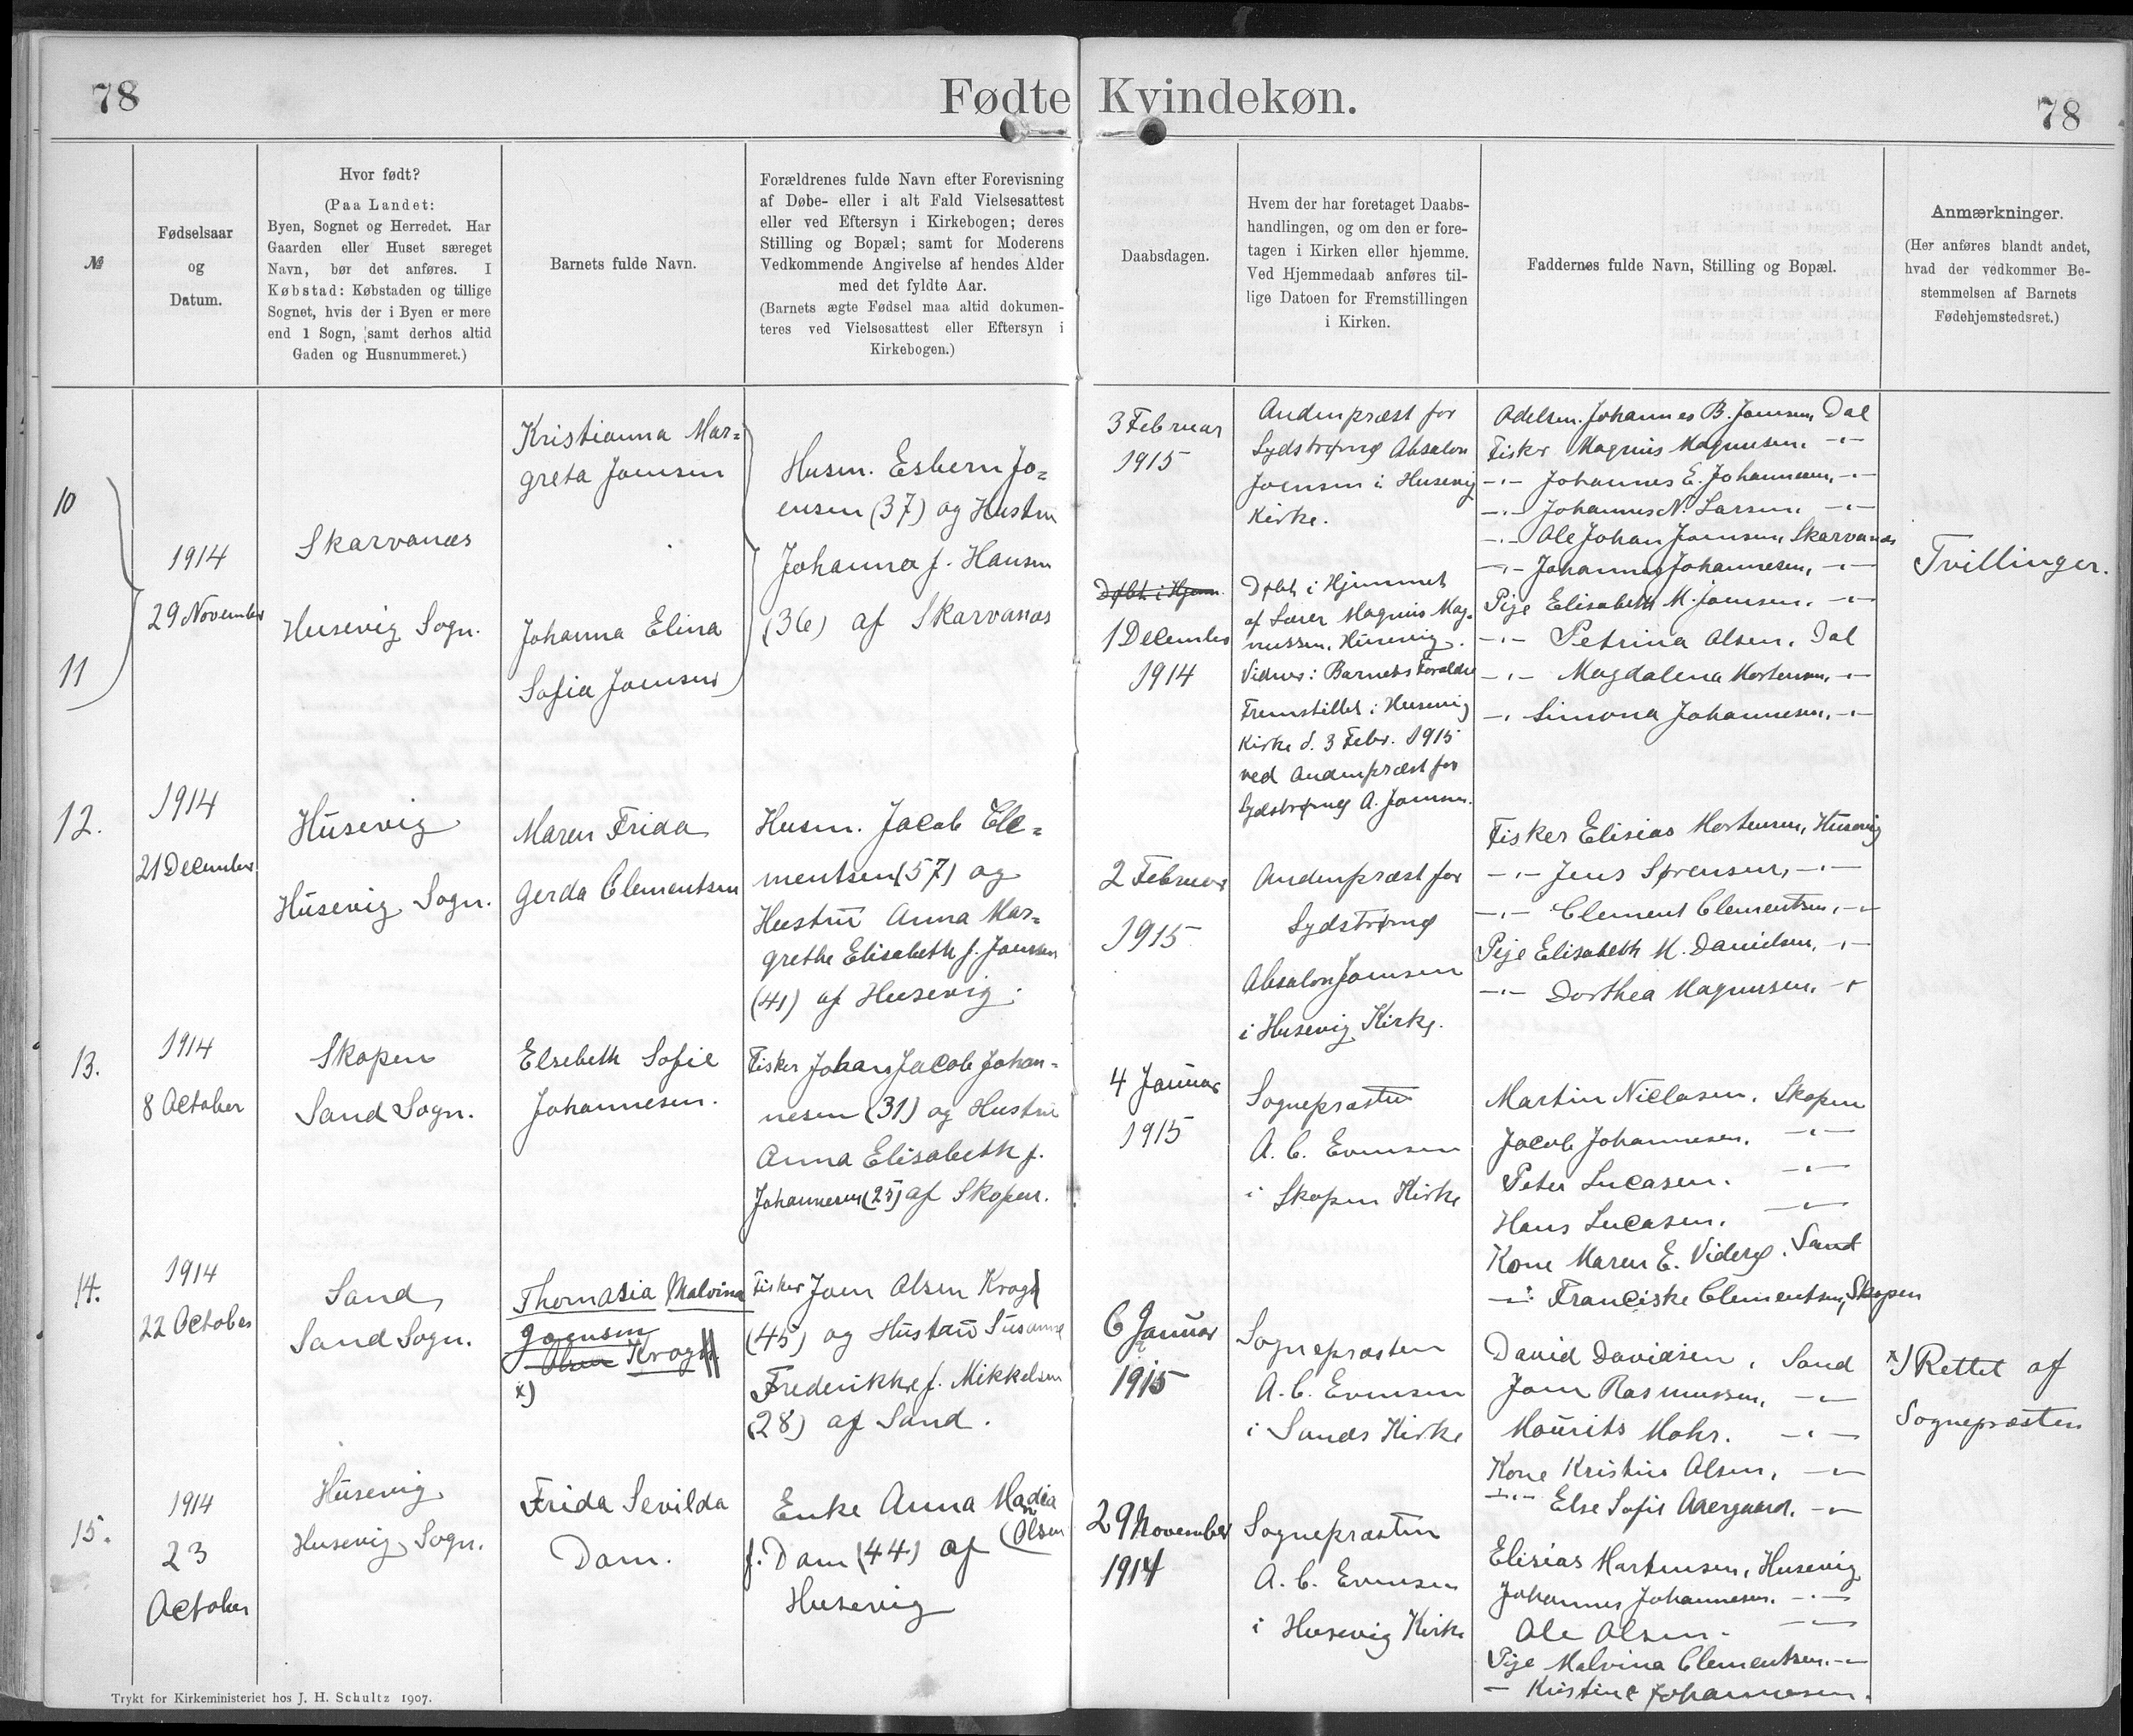 78
Fødte Kvindekøn.
78
№
Fødselsaar
og
Datum.
Hvor født?
(Paa Landet:
Byen, Sognet og Herredet. Har
Gaarden eller Huset særeget
Navn, bør det anføres. I
Købstad: Købstaden og tillige
Sognet, hvis der i Byen er mere
end 1 Sogn, samt derhos altid
Gaden og Husnummeret.)
Barnets fulde Navn.
Forældrenes fulde Navn efter Forevisning
af Døbe- eller i alt Fald Vielsesattest
eller ved Eftersyn i Kirkebogen; deres
Stilling og Bopæl; samt for Moderens
Vedkommende Angivelse af hendes Alder
med det fyldte Aar.
(Barnets ægte Fødsel maa altid dokumen-
teres ved Vielsesattest eller Eftersyn i
Kirkebogen.)
Daabsdagen.
Hvem der har foretaget Daabs-
handlingen, og om den er fore-
tagen i Kirken eller hjemme.
Ved Hjemmedaab anføres til-
lige Datoen for Fremstillingen
i Kirken.
Faddernes fulde Navn, Stilling og Bopæl.
Anmærkninger.
(Her anføres blandt andet,
hvad der vedkommer Be-
stemmelsen af Barnets
Fødehjemstedsret.)
10
11
1914
29 November
Skarvanæs
Husevig Sogn.
Kristianna Mar=
greta Joensen
Johanna Elina
Sofia Joensen
Husm. Esbern Jo=
ensen (37) og Hustru
Johanna f. Hansen
(36) af Skarvanæs
3 Februar
1915
Døbt i Hjem.
1 December
1914
Andenpræst for
Sydstrømø Absalon
Joensen i Husevig
Kirke.
Døbt i Hjemmet
af Lærer Magnus Mag-
nussen, Husevig.
Vidner: Barnets Forældre
Fremstillet i Husevig
Kirke d. 3 Febr. 1915
ved Andenpræst for
Sydstrømø A. Joensen.
Odelsm. Johannes B. Joensen, Dal
Fisker Magnus Magnusen. -"-
-"- Johannes E. Johannesen, -"-
-"- Johannes N. Larsen. -"-
-"- Ole Johan Joensen, Skarvanæs
-"- Johannes Johannesen, -"-
Pige Elisabeth M. Joensen. -"-
-"- Petrina Olsen. Dal
-"- Magdalena Mortensen, -"-
-"- Simona Johannesen, -"-
Tvillinger.
12.
1914
21 December
Húsevig
Húsevig Sogn.
Maren Frida
Gerda Clementsen
Husm. Jacob Cle=
mentsen (57) og
Hustrú Anna Mar=
grethe Elisabeth f. Joensen
(41) af Husevig.
2 Februar
1915
Andenpræst for
Sydstrømø
Absalon Joensen
i Husevig Kirke.
Fisker Elisias Mortensen, Husevig
-"- Jens Sørensen, -"-
-"- Clement Clementsen, -"-
Pige Elisabeth M. Danielsen, -"-
-"- Dorthea Magnussen. -"-
13.
1914
8 October
Skopen
Sand Sogn.
Elsebeth Sofie
Johannesen.
Fisker Johan Jacob Johan-
nesen (31) og Hustru
Anna Elisabeth f.
Johannesen (25) af Skopen.
4 Januar
1915
Sognepræsten
A. C. Evensen
i Skopen Kirke
Martin Niclasen, Skopen
Jacob Johannesen. -"-
Peter Lucasen. -"-
Hans Lucasen. -"-
Kone Maren E. Viderø. Sand
-"- Franciske Clementsen, Skopen
14.
1914
22 October
Sand
Sand Sogn.
Thomasia Malvina
Joensen
Olsen Krogh
x)
Fisker Joen Olsen Krogh
(45) og Hústrú Susanne
Frederikke f. Mikkelsen
(28) af Sand.
6 Januar
1915
Sognepræsten
A. C. Evensen
i Sands Kirke
David Davidsen, Sand
Joen Rasmussen, -"-
Mourits Mohr. -"-
Kone Kristine Olsen, -"-
-"- Else Sofie Aaergaard. -"-
x) Rettet af
Sognepræsten
15.
1914
23
October
Húsevig
Husevig Sogn.
Frida Sevilda
Dam.
Enke Anna Madia
Olsen
f. Dam (44) af
Husevig
29 November
1914
Sognepræsten
A. C. Evensen
i Husevig Kirke
Elisias Mortensen, Husevig
Johannes Johannesen. -"-
Ole Olsen. -"-
Pige Malvina Clementsen. -"-
- Kristine Johannesen.
Trykt for Kirkeministeriet hos J. H. Schultz 1907.